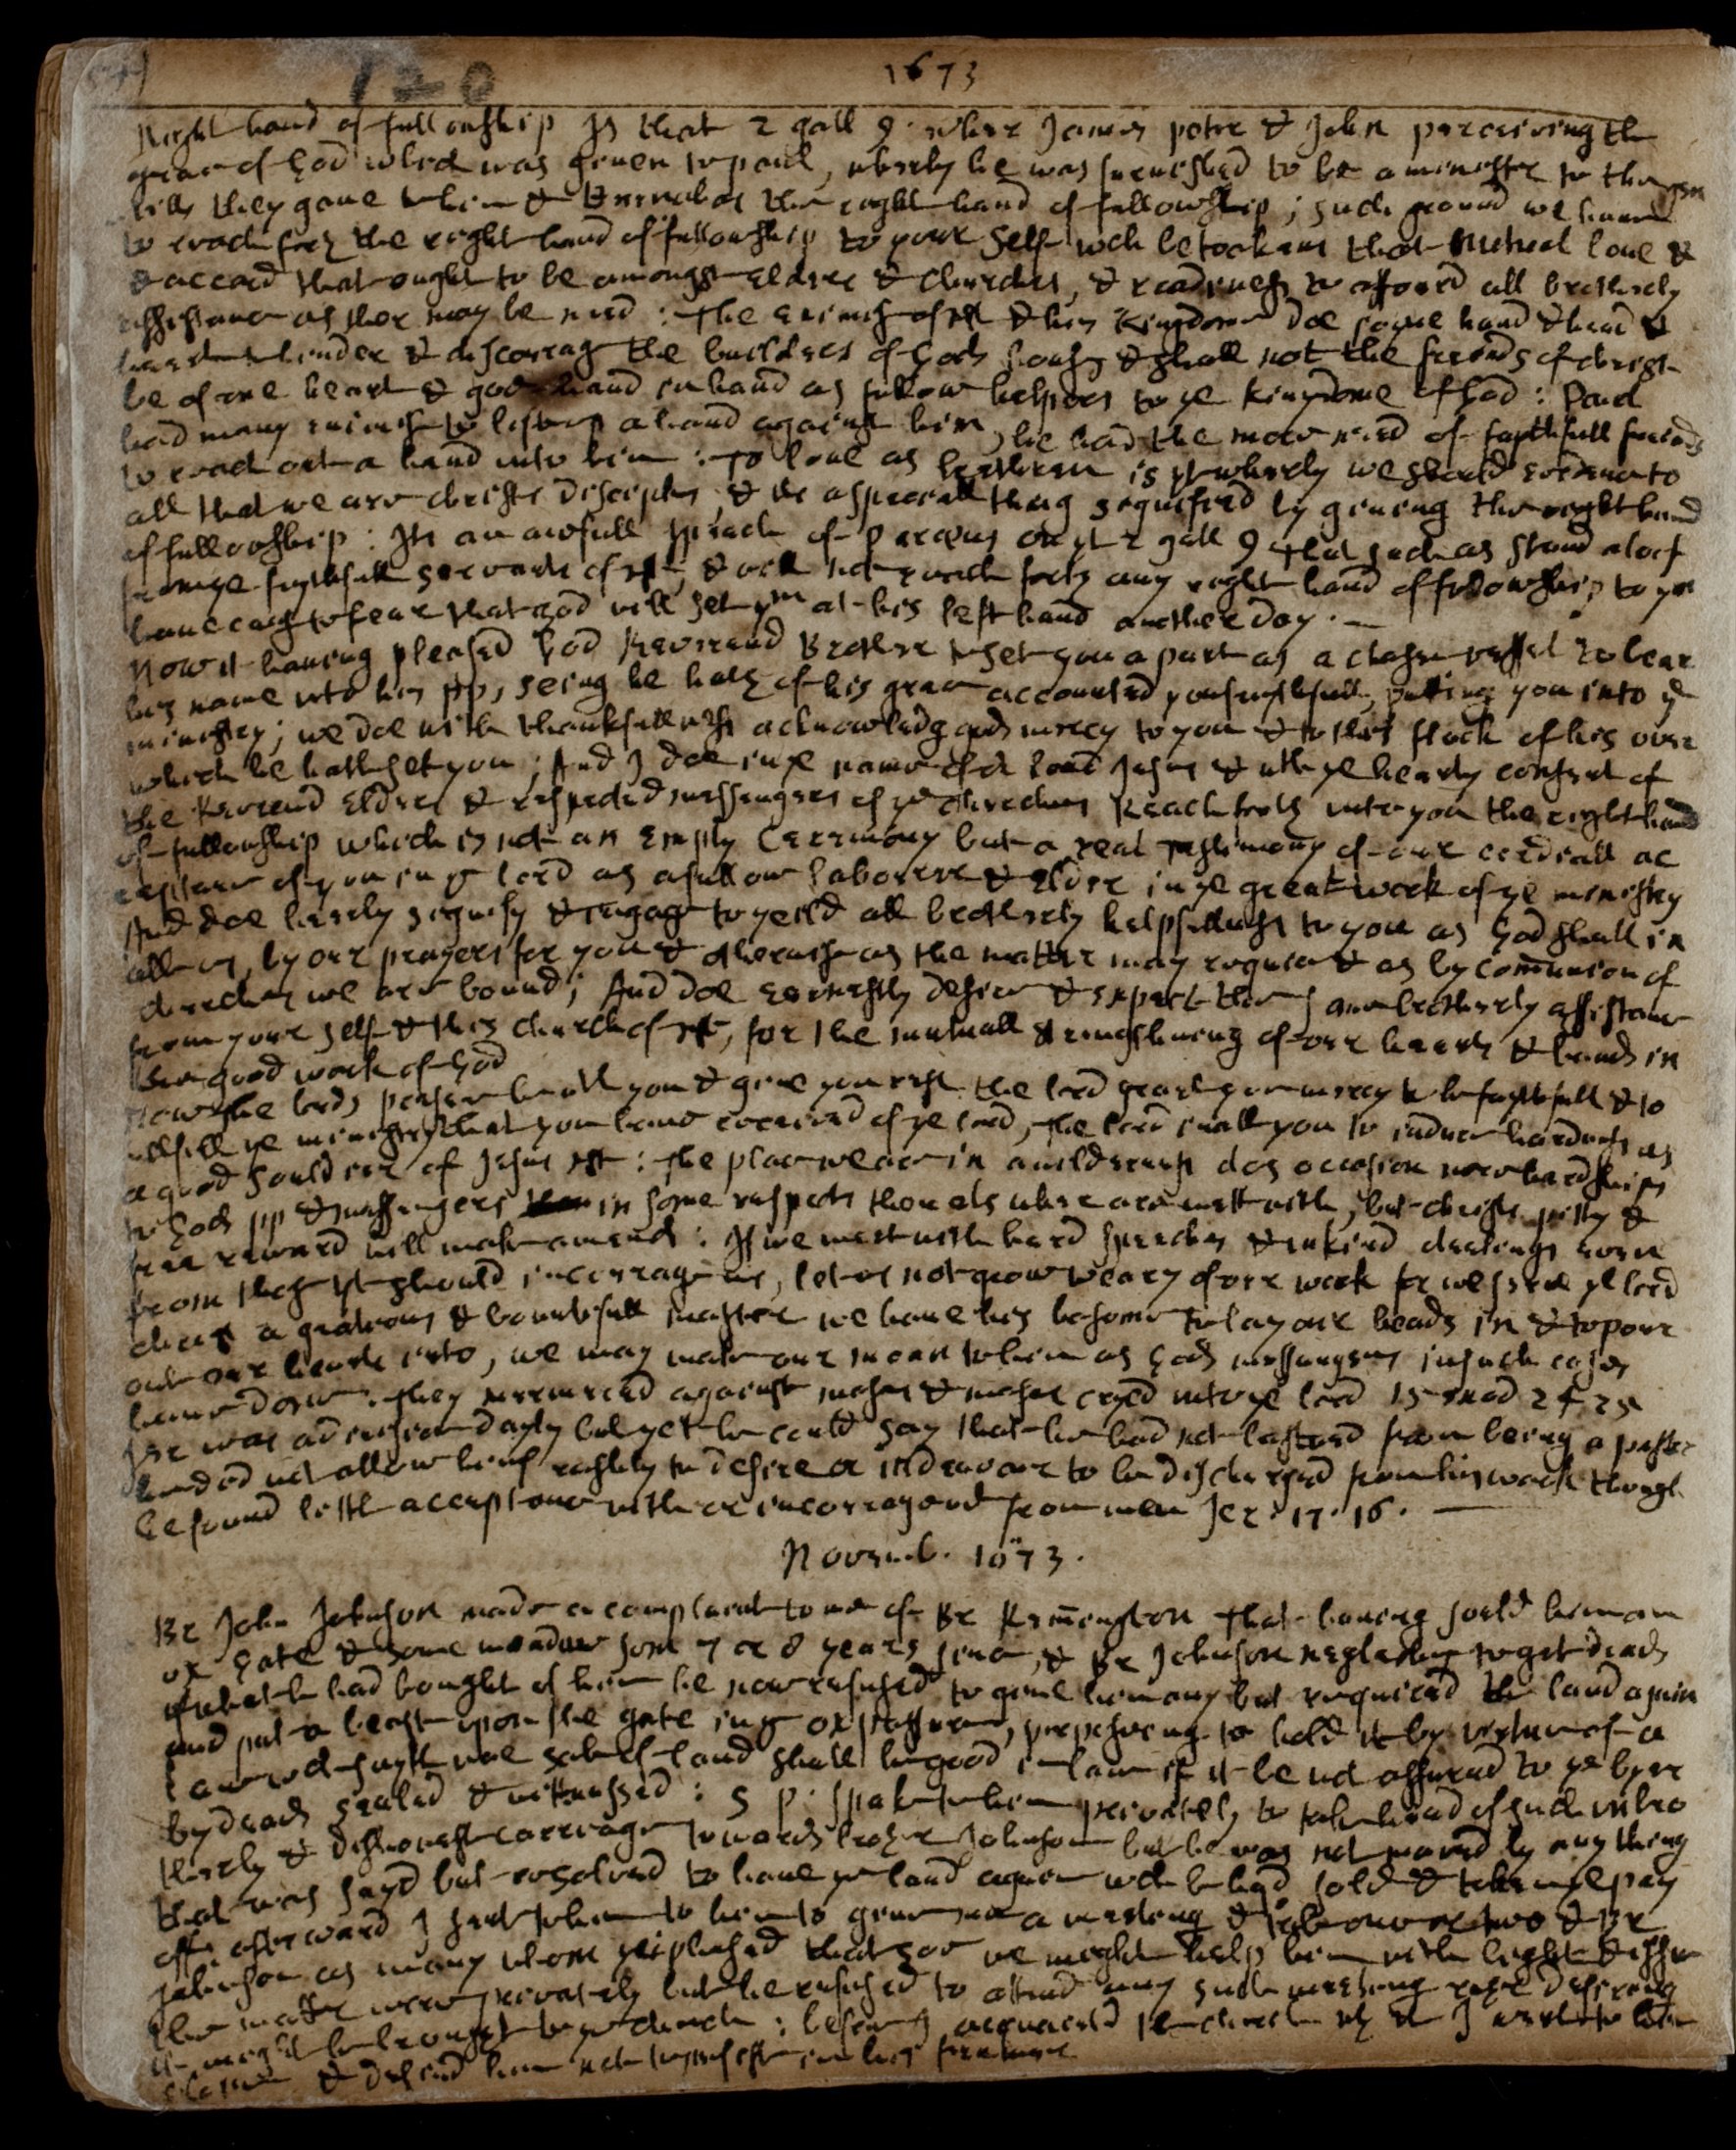 120
1673
Right hand of fellowship Is that 2 gall 9. where James peter & John perceiving the
grace of God which was given to paul, wherby he was furnished to be a minister to the gen
tills they gave to him & Barnabas the right hand of fellowship; such ground we have
to reach forth the right hand of fellowship to your self wch betookens that mutual love &
& accord that ought to be amongst Elders & churches, & readiness to afford all brotherly
assistance as ther may be need : The enimies of xt & his Kingdom doe joyne hand & head &
heart to hinder & discourag the builders of Gods house & shall not the freinds of christ
be of one heart & goe hand in hand as fellow helpers to ye kingdome of God : Paul
had many enimies to lift up a hand against him, he had the more need of faythfull freinds
to reach out a hand unto him : To love as brethren is yt wherby we should evidence to
all that we are christs disciples, & is a speciall thing signifyed by giveing the right hand
of fellowship : Its an awfull speach of Paraeus on yt 2 gall 9 that such as stand aloof
from ye faythfull servants of xt, & will not reach forth any right hand of fellowship to ym
have cause to fear that God will set ym at his left hand another day. —
Now it having pleased God Reverend Brother to set you apart as a chosen vessel to bear
his name unto his pp, seing he hath of his grace accounted you faythfull, putting you into ye
ministry; we doe with thankfullness acknowledg gods mercy to you & to this flock of his over
which he hath set you; And I doe in ye name of or lord Jesus & wth ye hearty consent of
the Reverend Elders & respected messengers of ye churches Reach forth unto you the right hand
of fellowship which is not an Empty Cerimony but a real testimony of our cordiall ac
ceptance of you in ye lord as a fellow labourer & Elder in ye great work of ye ministry
And doe hereby signify & engage to yeild all brotherly helpfullness to you as God shall in
able us, by our prayers for you & otherwise as the matter may require & as by comunion of
churches we are bound; And doe earnestly desire & expect the same brotherly assistance
from your self & this church of xt, for the mutuall strengthening of our hearts & hands in
the good work of God
Now the lords presence be with you & give you rest the lord grant you mercy to be faythfull & to
fullfill ye ministry that you have received of ye lord, the lord inable you to indure hardness as
a good souldier of Jesus xt : the place we are in a wilderness dos occasion more hardships
to Gods pp & messengers in some respects then els where are mett with, but christs pitty &
free reward will make amends : If we meet with hard speeches & unkind dealings even
from those yt should incourage us, let us not grow weary of our work for we serve ye lord
christ a gratious & bountifull master we have his bosome to lay our heads in & to pour
out our hearts into, we may make our moan to him as Gods messengers in such cases
have done : they murmured against moses & moses cryed unto ye lord 15 exod 24 25
Jer was a derision dayly but yet he could say that he had not hastned from being a paster
he did not allow himself rashly to desire or indeavour to be discharged from his work though
he found little acceptance with or incorragment from men Jer: 17. 16. —
Novemb. 1673.
Br John Johnson made a complaint to me of Br Remington that having sould him an
ox gate & some meadow some 7 or 8 years since, & Br Johnson neglecting to get deads
of what he had bought of him he now refused to give him any but required the land again
and put a beast upon the gate in ye ox pasture, purposing to hold it by vertue of a
law wch sayth noe sale of land shall be good in law if it be not assured to ye byer
by deads sealed & witnessed : S P. spake to him privately to take heed of such unbro
therly & dishonest carriage towards brother Johnson but he was not moved by any thing
that was sayd but resolved to have ye land again wch he had sold & taken ye pay
off. afterward I sent to him to give me a meeting & take one or two & Br
Johnson as many whom he pleased that soe we might help him with light & issue
the matter more privately but he refused to attend any such meeting rather desireing
it might be brought to ye church : before I acquainted ye church wth it I went to him
& desired him not to